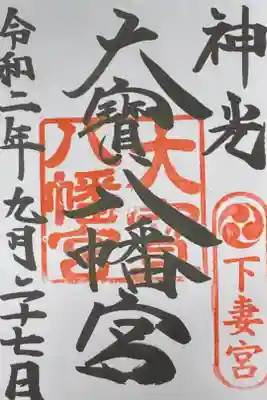 神光
下妻宮
大寳八幡宮
大寳
八幡宮
令和二年九月二十七日